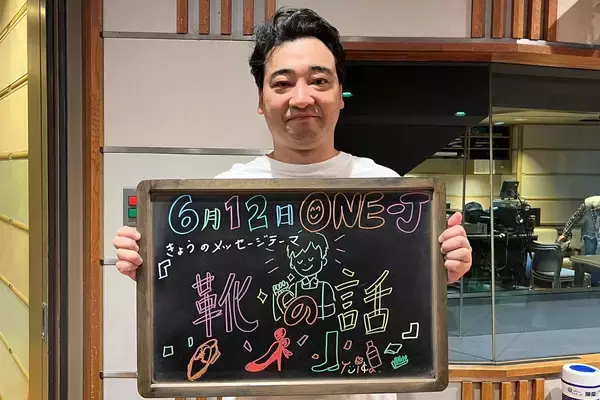 6月12日 ONE-J
きょうのメッセージテーマ
『靴の話』